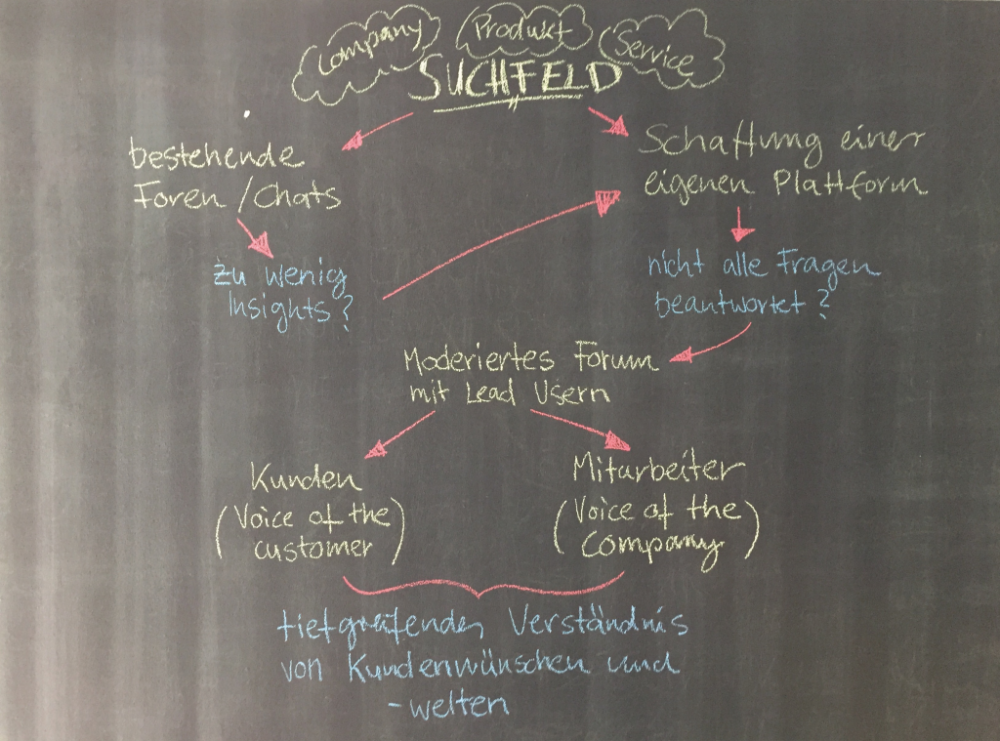 Company
Produkt
Service
SUCHFELD
bestehende
Foren / Chats
Schaffung einer
eigenen Plattform
zu wenig
Insights?
nicht alle Fragen
beantwortet?
Moderiertes Forum
mit Lead Usern
Kunden
(Voice of the
customer)
Mitarbeiter
(Voice of the
Company)
tiefgreifendes Verständnis
von Kundenwünschen und
-welten